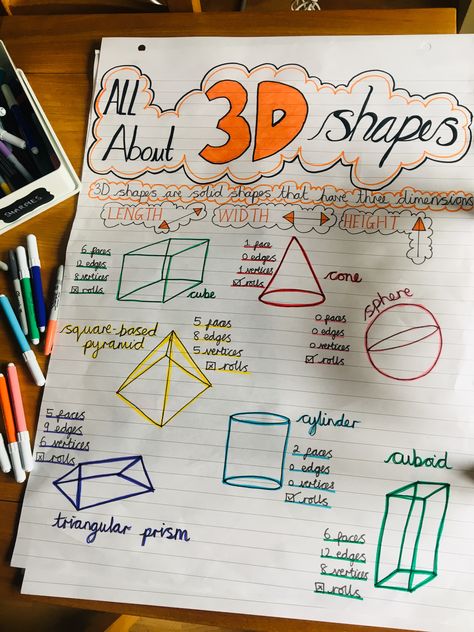 ALL About 3D shapes
3D shapes are solid shapes that have three dimensions
LENGTH WIDTH HEIGHT
6 faces
12 edges
8 vertices
☒ rolls
cube
1 face
0 edges
1 vertices
☑ rolls
cone
sphere
0 faces
0 edges
0 vertices
☑ rolls
square-based
pyramid
5 faces
8 edges
5 vertices
☒ rolls
5 faces
9 edges
6 vertices
☒ rolls
triangular prism
cylinder
2 faces
0 edges
0 vertices
☑ rolls
cuboid
6 faces
12 edges
8 vertices
☒ rolls
SHARPIES